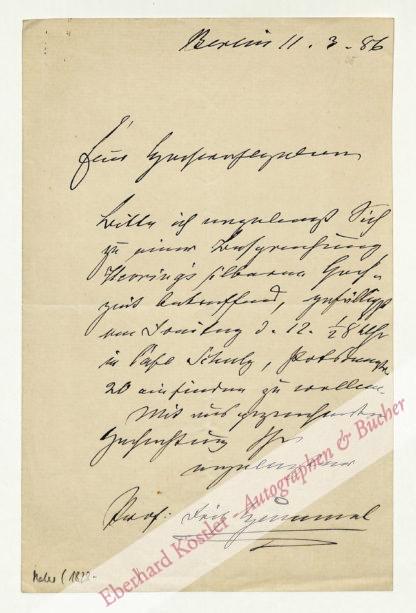 Berlin 11. 3. 86
Euer Hochwohlgeboren
bitte ich ergebenst Sich
zu einer Besprechung
silberne Hoch-
zeit betreffend, gefälligst
am Freitag d. 12. ½8 Uhr
in Café Schulz, Potsdamstr.
20 einfinden zu wollen.
Mit ausgezeichneter
Hochachtung Ihr
ergebenster
Prof:
Maler (1822-
Eberhard Köstler - Autographen & Bücher